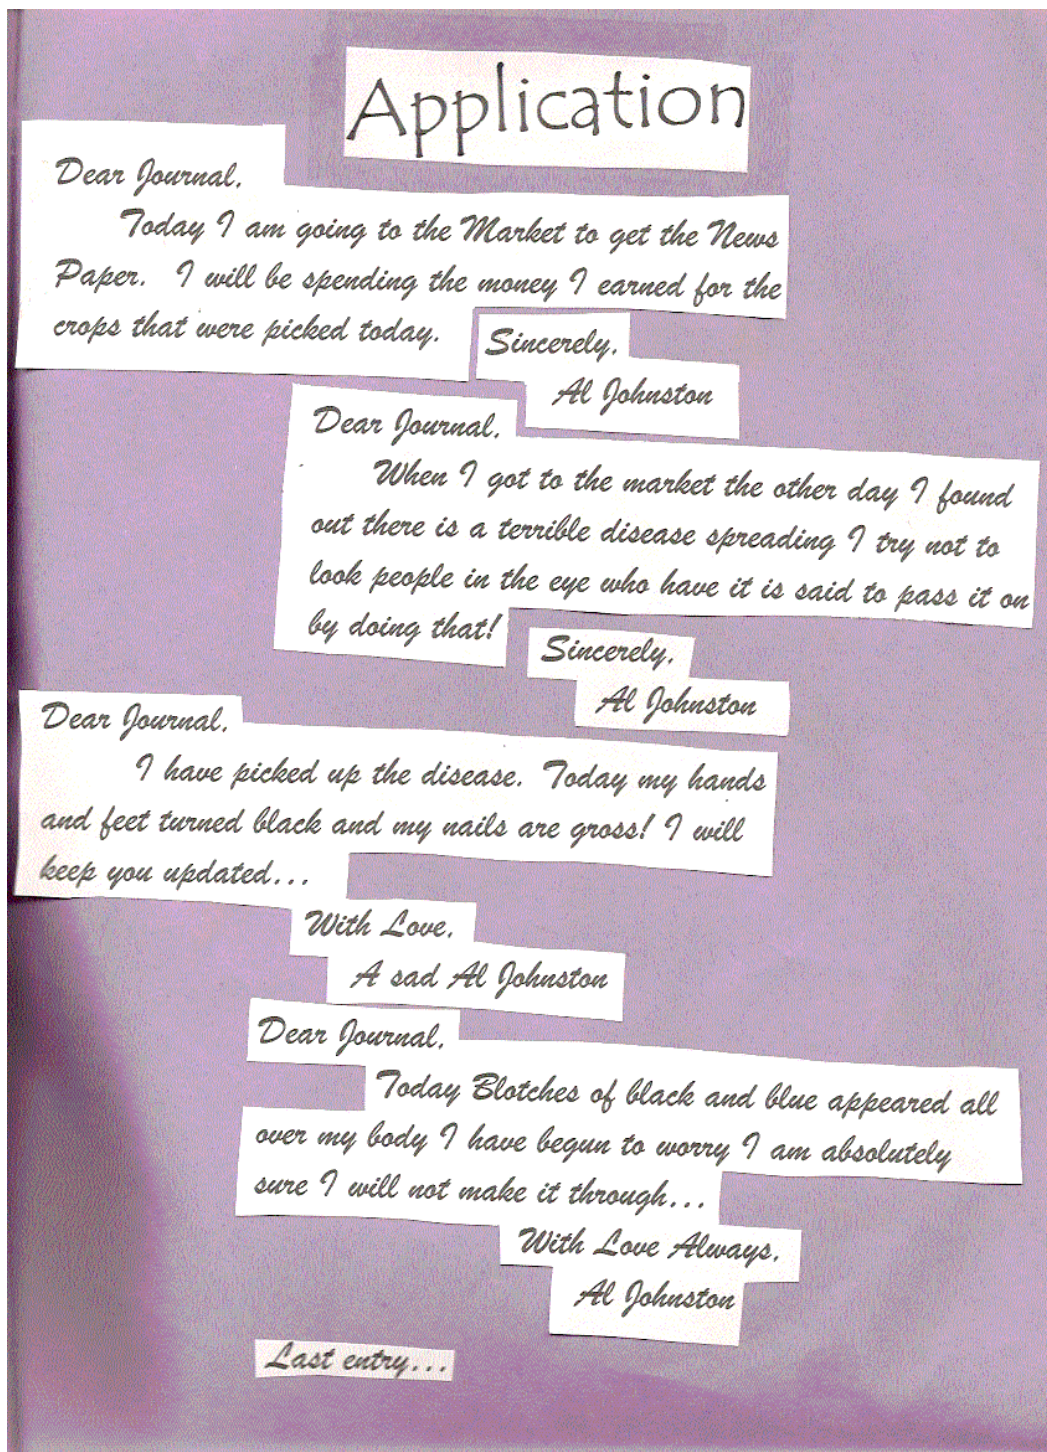 Application
Dear Journal,
Today I am going to the Market to get the News
Paper. I will be spending the money I earned for the
crops that were picked today.
Sincerely,
Al Johnston
Dear Journal,
When I got to the market the other day I found
out there is a terrible disease spreading I try not to
look people in the eye who have it is said to pass it on
by doing that!
Sincerely,
Al Johnston
Dear Journal,
I have picked up the disease. Today my hands
and feet turned black and my nails are gross! I will
keep you updated...
With Love,
A sad Al Johnston
Dear Journal,
Today Blotches of black and blue appeared all
over my body I have begun to worry I am absolutely
sure I will not make it through...
With Love Always,
Al Johnston
Last entry...